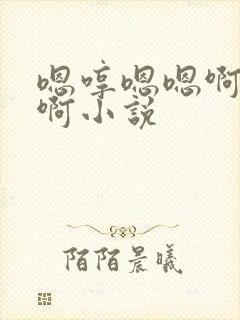 嗯哼嗯嗯啊
啊小説
陌陌晨曦